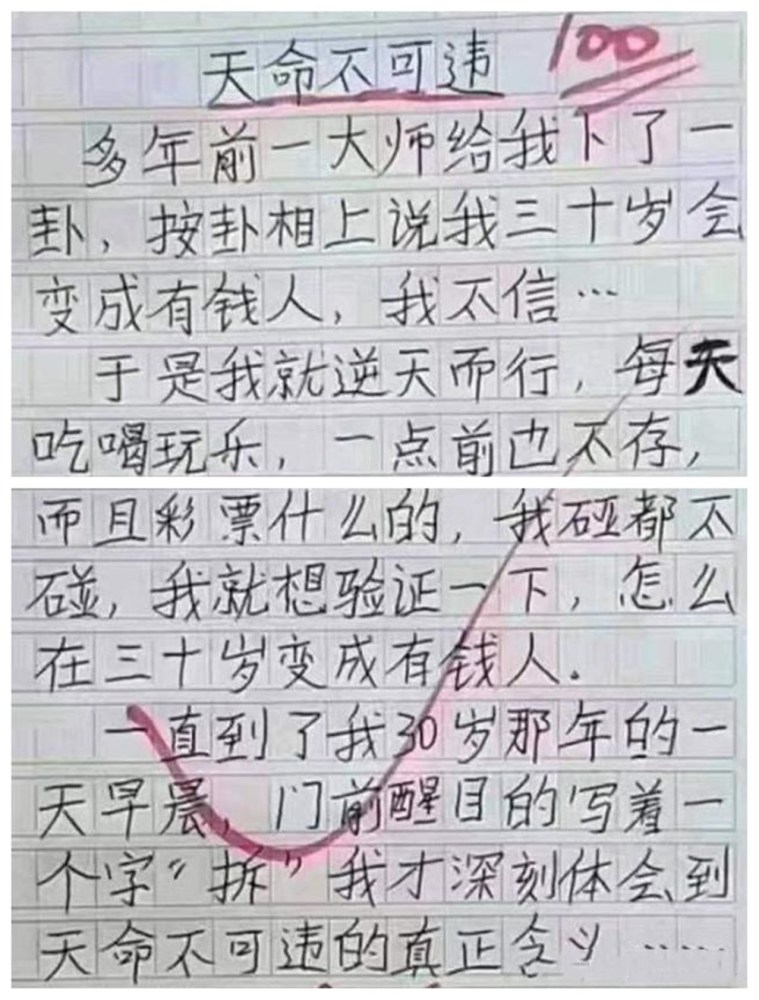 天命不可违 100
多年前一大师给我下了一
卦，按卦相上说我三十岁会
变成有钱人，我不信…
于是我就逆天而行，每天
吃喝玩乐，一点前也不存，
而且彩票什么的，我碰都不
碰，我就想验证一下，怎么
在三十岁变成有钱人.
一直到了我30岁那年的一
天早晨，门前醒目的写着一
个字“拆”我才深刻体会到
天命不可违的真正含义……